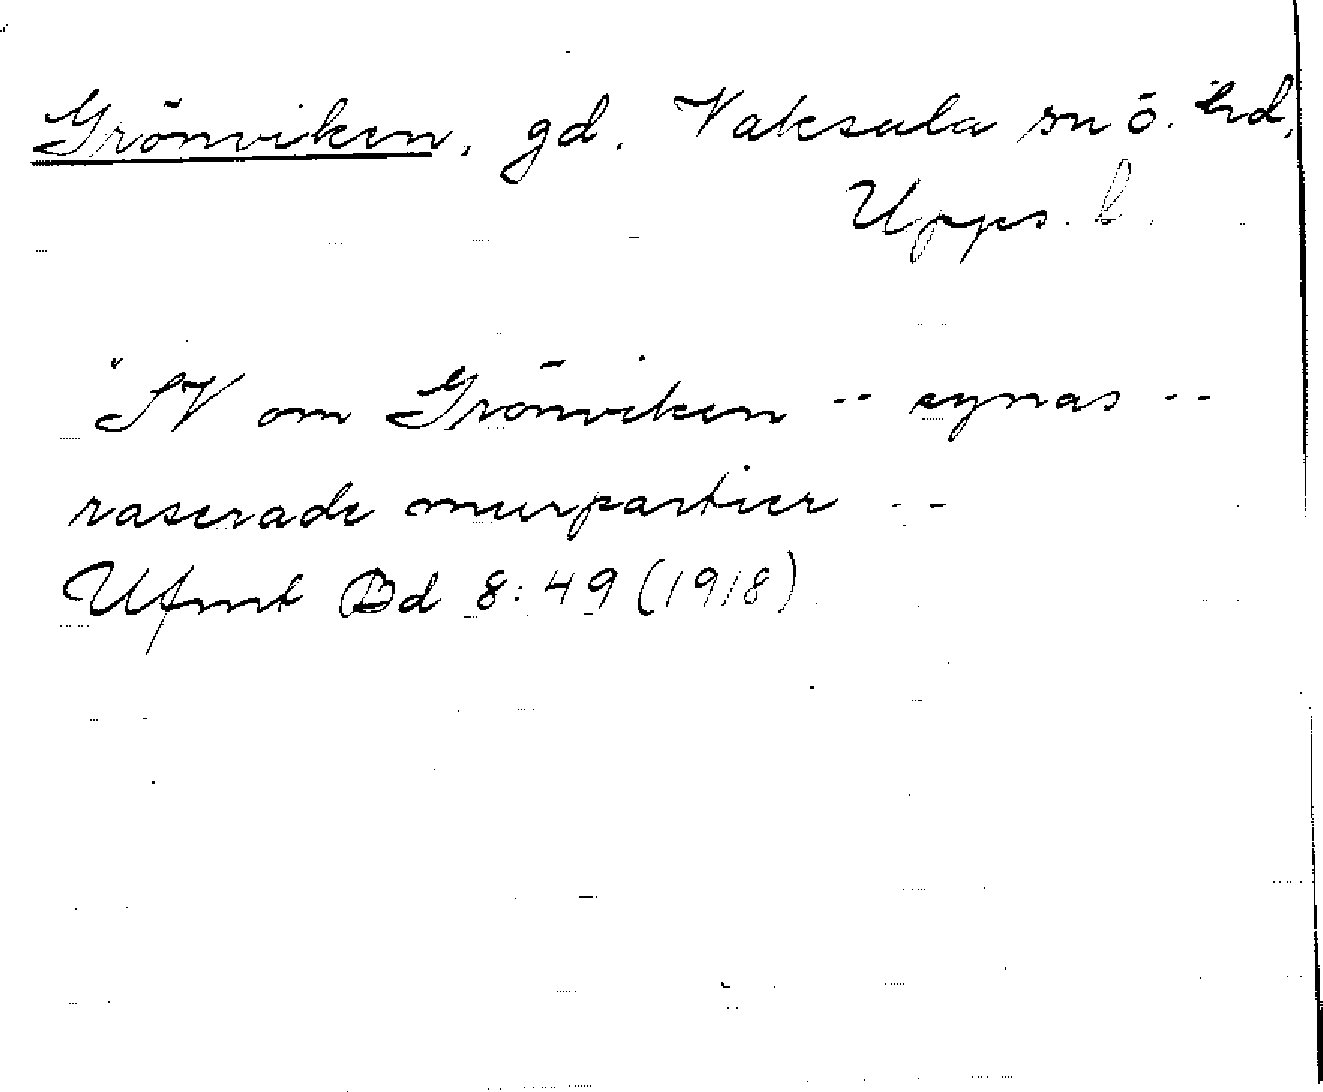 Grönviken, gd. Vaksala sn ö. hd,
Upps. l.
"SV om Grönviken -- synas --
raserade murpartier --
Ufmt Bd 8:49 (1918)